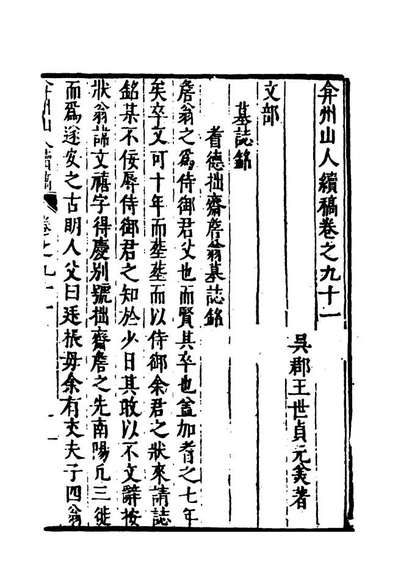 弇州山人續稿卷之九十一
吳郡王世貞元美著
文部
墓誌銘
耆德拙齋詹翁墓誌銘
詹翁之爲侍御君父也而賢其卒也葢加耆之七年
矣卒又可十年而塟塟而以侍御余君之狀來請誌
銘某不佞辱侍御君之知於少日其敢以不文辭按
狀翁諱文禧字得慶別號拙齋詹之先南陽凡三徙
而爲遂安之古明人父曰廷振母余有丈夫子四翁
弇州山人續稿 卷之九十一 一